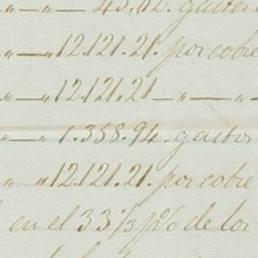 " — " — 43.02. gastos
" — " 12.121.21. por cobre
" — " 12.121.21 — " — " —
" — " 1.358.94. gastos
" — " 12.121.21. por cobre
en el 33⅓ p% de los